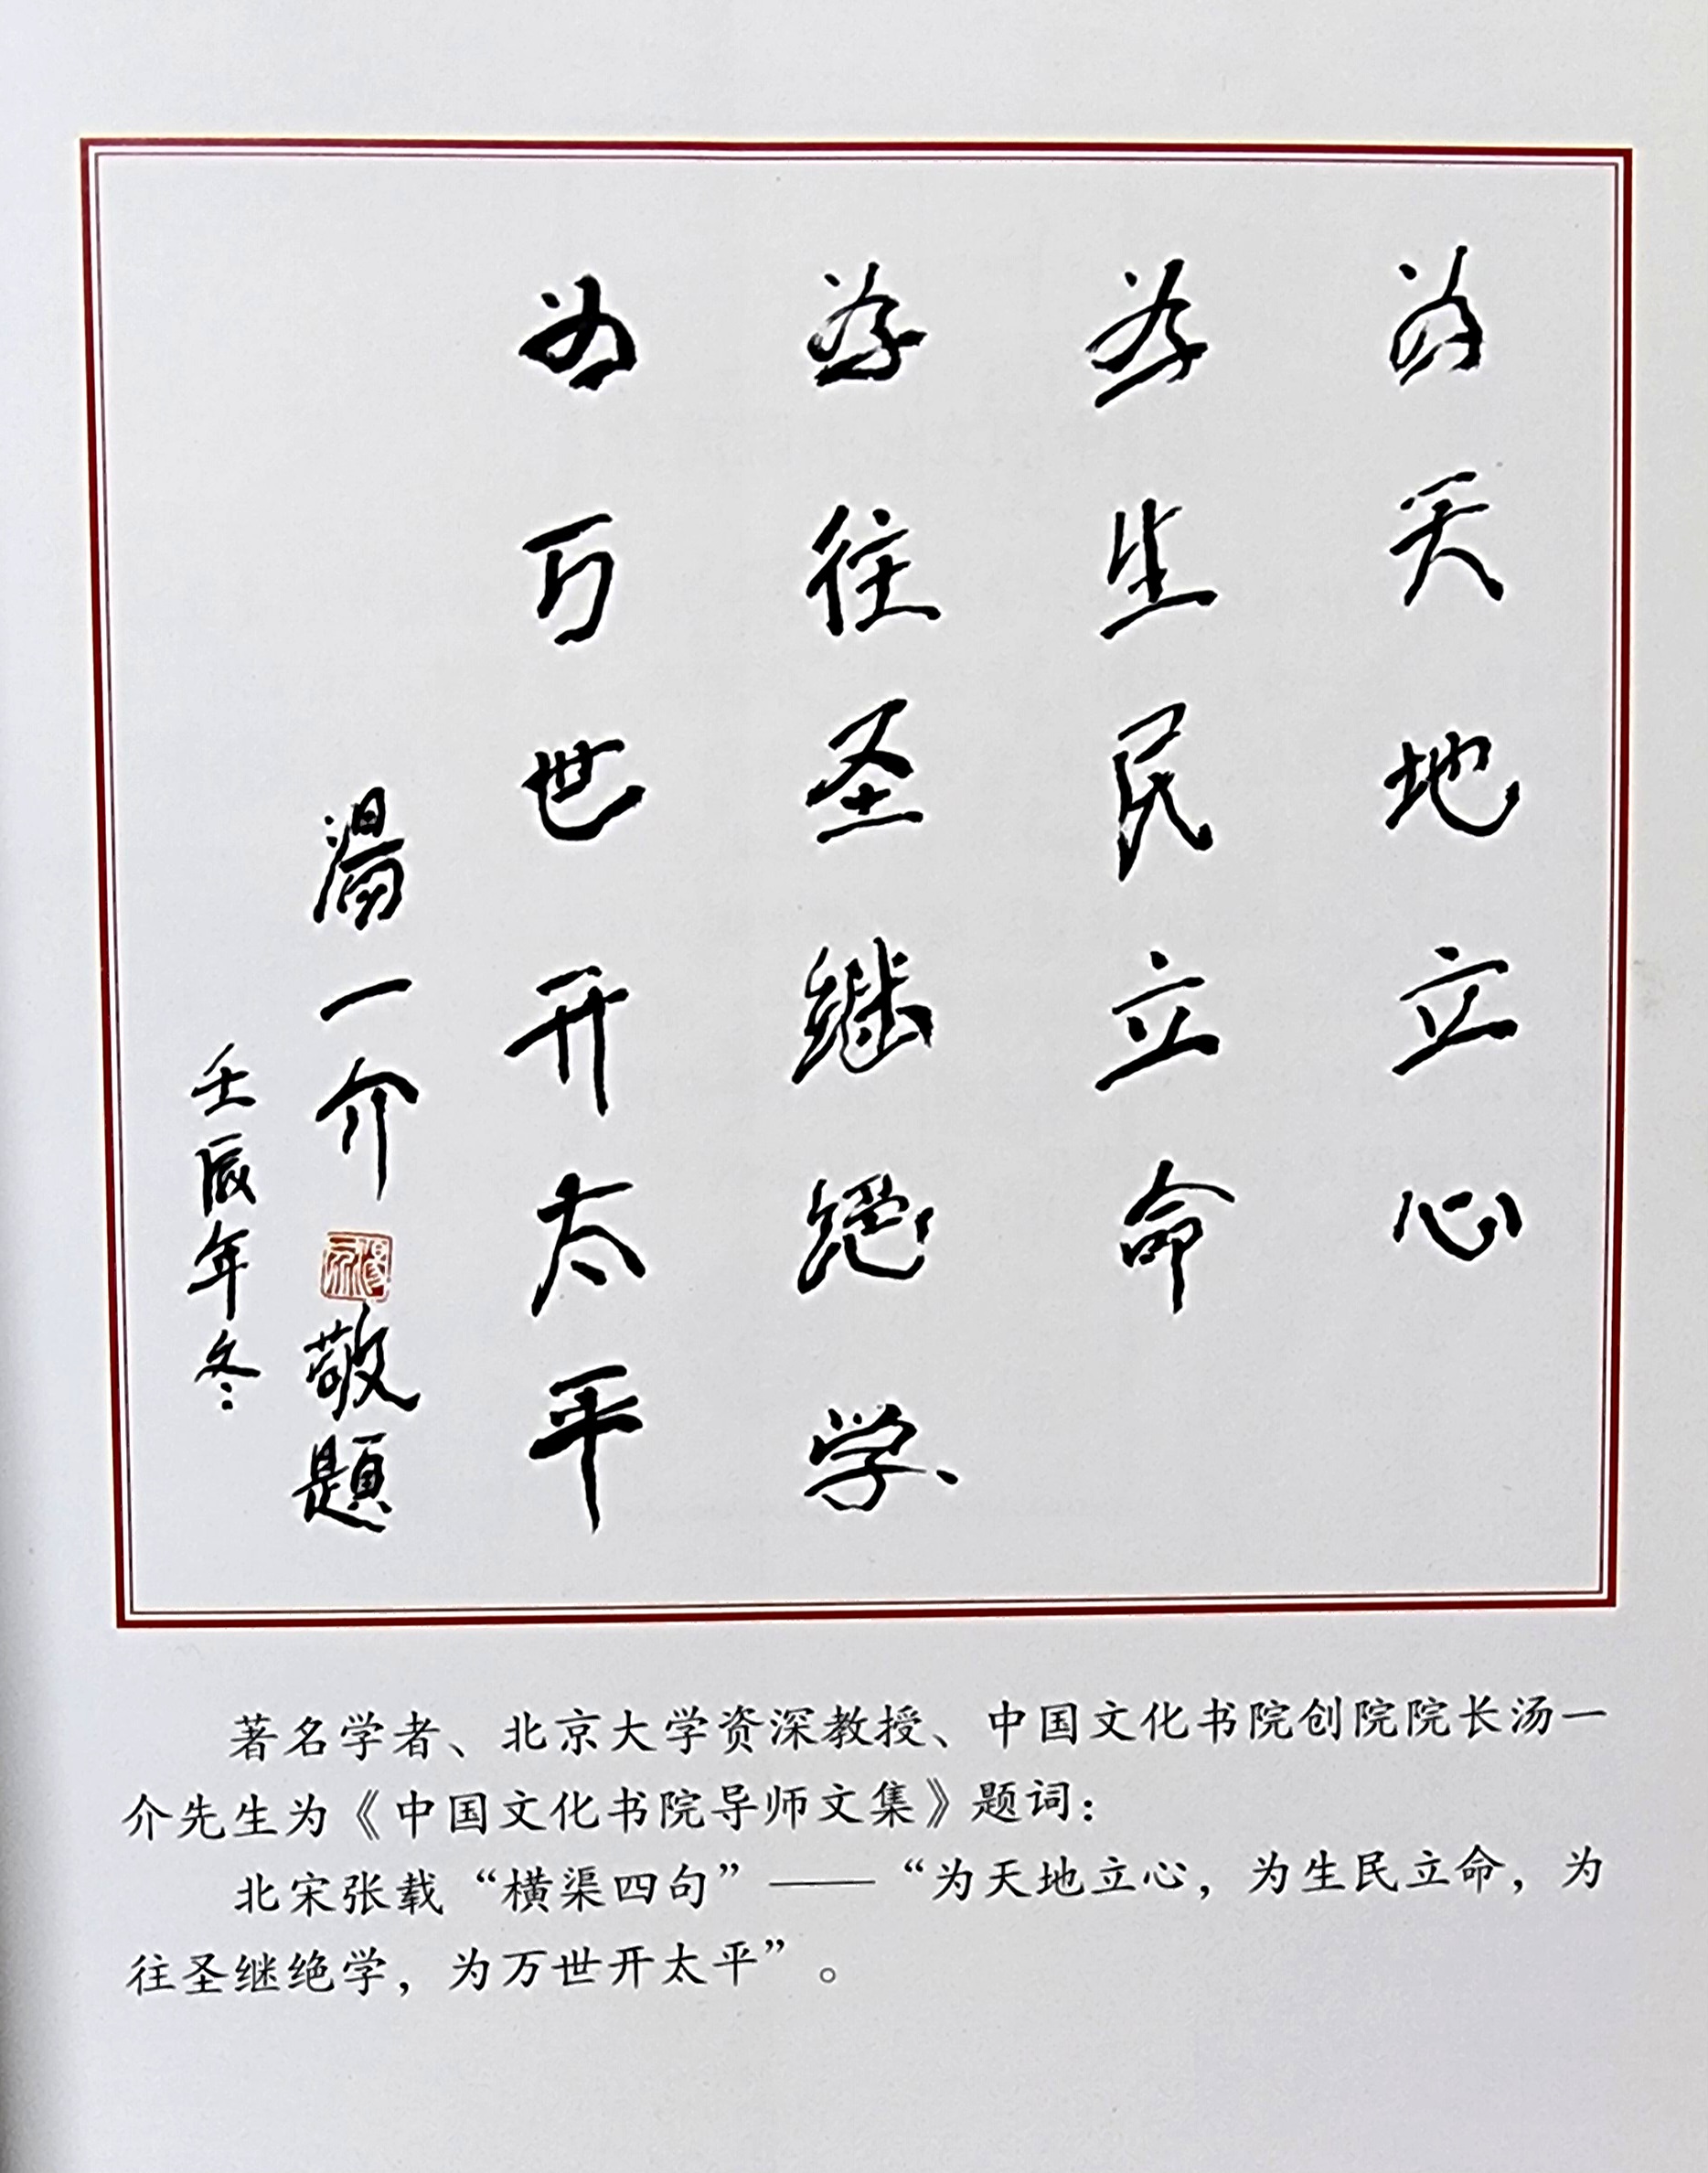 为天地立心
为生民立命
为往圣继绝学、
为万世开太平
湯一介
敬題
壬辰年冬
著名学者、北京大学资深教授、中国文化书院创院院长汤一
介先生为《中国文化书院导师文集》题词：
北宋张载“横渠四句”——“为天地立心，为生民立命，为
往圣继绝学，为万世开太平”。